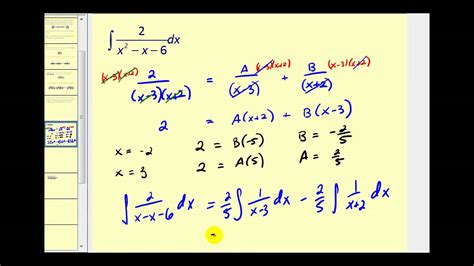 ∫ 2/(x² − x − 6) dx
(x-3)(x+2) 2/((x-3)(x+2)) = A/(x-3) (x-3)(x+2) + B/(x+2) (x-3)(x+2)
2 = A(x+2) + B(x-3)
x = -2 2 = B(-5) B = -2/5
x = 3 2 = A(5) A = 2/5
∫ 2/(x-x-6) dx = 2/5 ∫ 1/(x-3) dx - 2/5 ∫ 1/(x+2) dx
=